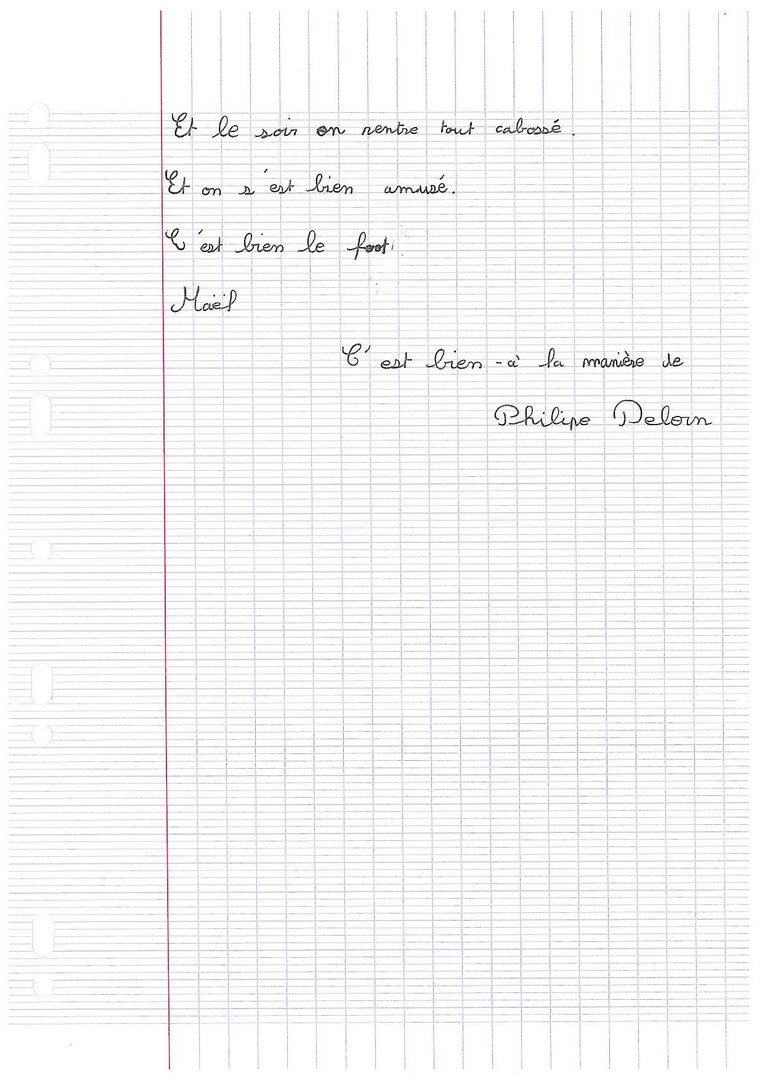 Et le soir on rentre tout cabossé.
Et on s'est bien amusé.
C'est bien le foot.
Maël
C'est bien - à la manière de
Philipe Delorn